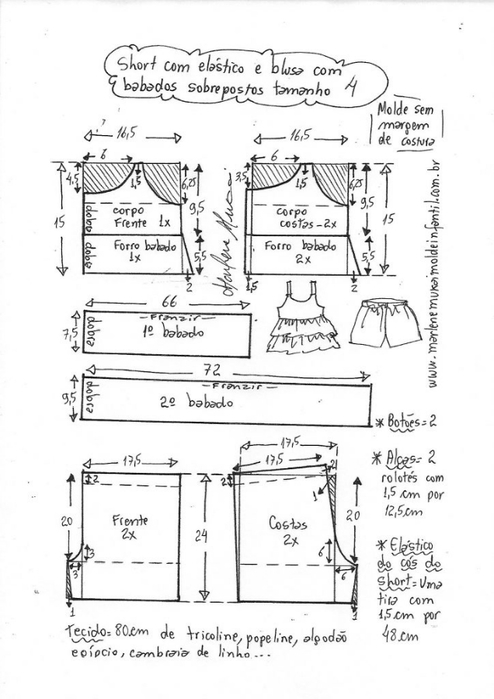 Short com elástico e blusa com
babados sobrepostos tamanho 4
Molde sem
margem
de costura
16,5
6
4,5
1,5
6,25
9,5
15
dobra
corpo
Frente 1x
dobra
Forro babado
1x
5,5
2
16,5
6
3,5
1,5
6,25
9,5
15
corpo
costas-2x
Forro babado
2x
5,5
1,5
2
www.marlenemukaimoldeinfantil.com.br
66
7,5
dobra
-Franzir-
1º babado
72
9,5
dobra
-Franzir-
2º babado
* Botões=2
* Alças=2
rolotês com
1,5 cm por
12,5cm
* Elástico
do cós do
short=Uma
tira com
1,5 cm por
48 cm
17,5
2
20
Frente
2x
3
3
1
24
17,5
17,5
2
2
1
20
Costas
2x
6
6
1
Tecido=80cm de tricoline, popeline, algodão
egípcio, cambraia de linho...